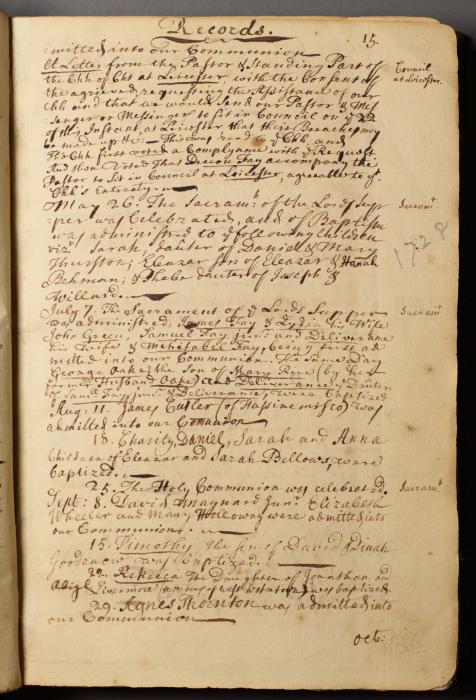 Records.
15.
mitted into our Communion
A Letter from the Pastor & Standing Part of
the Chh of Cht at Leicester with the Consent of
the agrieved, requesting the Assistance of our
Chh and that we would send our Pastor & Mes
senger or Messengers to sit in Council on ye 22
of this Instant, at Leicester that their Breaches may
be made up &c. This was read to ye Chh, and
The Chh first voted a Compliance with ye Request
And then Voted That Deacon Fay accompany the
Pastor to Sit in Council at Leicester, agreeable to ye
Chh's Entreaty.
Council
at Leicester.
May 26. The Sacramt of the Lords Sup
per was Celebrated, and of Baptism
was administred to ye following Children
viz Sarah, dauter of Daniel & Mary
Thurston; Eleazar son of Eleazar & Hanah
Behman; & Phebe dauter of Joseph &
Willard.
Sacramt
1728
July 7. The Sacrament of ye Lords Supper
was administred; James Fay & Lydia his Wife
John Green, Samuel Fay junr and Deliverance
his Wife & Mehetabel Fay, being first ad
mitted into our Communion. The same Day
George Oake, the Son of Mary Rice (by her
former Husband Oake) and Deliverance ye Dauter
of Saml Fay junr & Deliverance, were baptized
Sacramt
Aug: 11. James Cutler (of Hassinemisco) was
admitted into our Comunion
18. Charity, Daniel, Sarah and Anna
Children of Eleazar and Sarah Bellows, were
baptized.
25. The Holy Communion was celebrated.
Sacramt
Sept: 8. David Maynard Junr Elizabeth
Wheeler and Mary Holloway were admitted into
our Communion.
15. Timothy, the son of David & Dinah
Goodenow was baptized.
22. Rebecca The Daughter of Jonathan and
Abigl Livermore was baptized
29. Agnes Thornton was admitted into
our Communion
oct: